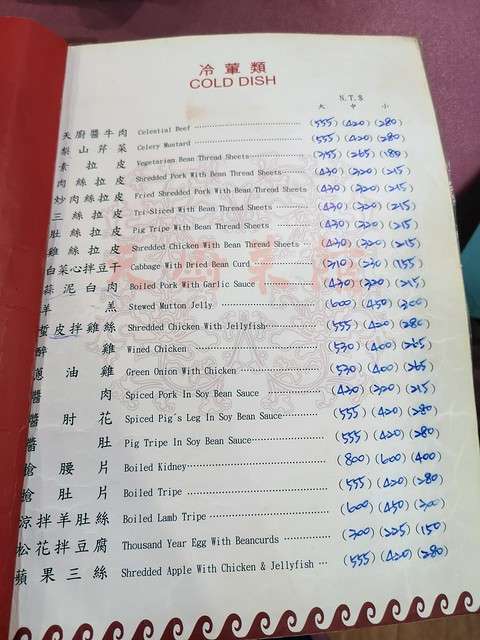 冷葷類
COLD DISH
N.T.$
大 中 小
天廚醬牛肉 Celestial Beef (555) (420) (280)
梨山芹菜 Celery Mustard (555) (420) (280)
素拉皮 Vegetarian Bean Thread Sheets (345) (265) (180)
肉絲拉皮 Shredded Pork With Bean Thread Sheets (430) (320) (215)
炒肉絲拉皮 Fried Shredded Pork With Bean Thread Sheets (430) (320) (215)
三絲拉皮 Tri-Sliced With Bean Thread Sheets (430) (320) (215)
肚絲拉皮 Pig Tripe With Bean Thread Sheets (430) (320) (215)
雞絲拉皮 Shredded Chicken With Bean Thread Sheets (430) (320) (215)
白菜心拌豆干 Cabbage With Dried Bean Curd (310) (230) (155)
蒜泥白肉 Boiled Pork With Garlic Sauce (430) (320) (215)
羊羔 Stewed Mutton Jelly (600) (450) (300)
蜇皮拌雞絲 Shredded Chicken With Jellyfish (555) (420) (280)
醉雞 Wined Chicken (530) (400) (265)
蔥油雞 Green Onion With Chicken (530) (400) (265)
醬肉 Spiced Pork In Soy Bean Sauce (430) (320) (215)
醬肘花 Spiced Pig's Leg In Soy Bean Sauce (555) (420) (280)
醬肚 Pig Tripe In Soy Bean Sauce (555) (420) (280)
熗腰片 Boiled Kidney (800) (600) (400)
熗肚片 Boiled Tripe (555) (420) (280)
涼拌羊肚絲 Boiled Lamb Tripe (600) (450) (300)
松花拌豆腐 Thousand Year Egg With Beancurds (300) (225) (150)
蘋果三絲 Shredded Apple With Chicken & Jellyfish (555) (420) (280)